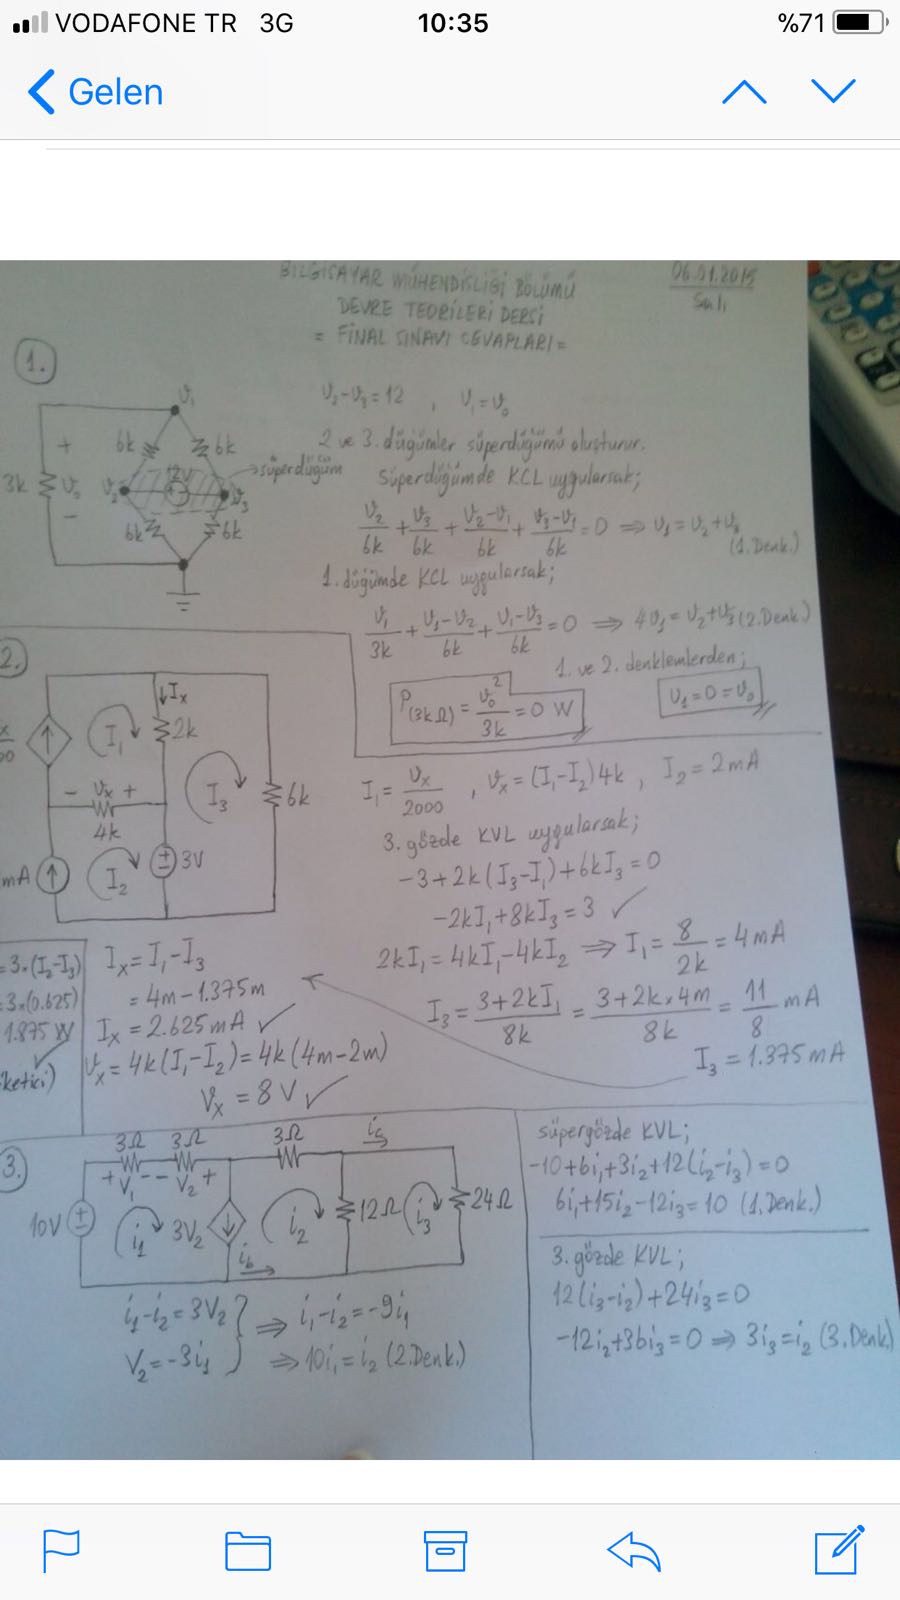 VODAFONE TR 3G 10:35 %71
Gelen
BİLGİSAYAR MÜHENDİSLİĞİ BÖLÜMÜ
DEVRE TEORİLERİ DERSİ
= FİNAL SINAVI CEVAPLARI =
06.01.2015
Salı
1.
V₁
6k 6k
+
3k V₀ V₂ 12V V₃ →süperdüğüm
-
6k 6k
, V₁=V₀
2 ve 3. düğümler süperdüğümü oluşturur.
Süperdüğümde KCL uygularsak;
V₂/6k + V₃/6k + (V₂-V₁)/6k + (V₃-V₁)/6k = 0 ⇒ V₁=V₂+V₃
(1.Denk.)
1. düğümde KCL uygularsak;
V₁/3k + (V₁-V₂)/6k + (V₁-V₃)/6k = 0 ⇒ 4V₁=V₂+V₃ (2.Denk.)
1. ve 2. denklemlerden;
P(3kΩ) = V₀²/3k = 0 W
V₁=0=V₀
2.
↓Iₓ
I₁ 2k
I₃ 6k
- Vₓ +
4k
mA I₂ 3V
I₁ = Vₓ/2000 , Vₓ=(I₁-I₂)4k , I₂=2mA
3. gözde KVL uygularsak;
-3+2k(I₃-I₁)+6kI₃=0
-2kI₁+8kI₃=3 ✓
2kI₁=4kI₁-4kI₂ ⇒ I₁= 8/2k = 4mA
I₃ = (3+2kI₁)/8k = (3+2k×4m)/8k = 11/8 mA
I₃ = 1.375mA
=3×(I₂-I₃)
=3×(0.625)
1.875 W
ketici)
Iₓ=I₁-I₃
=4m-1.375m
Iₓ=2.625mA ✓
Vₓ=4k(I₁-I₂)=4k(4m-2m)
Vₓ = 8V ✓
3.
3Ω 3Ω 3Ω
+V₁- -V₂+
10V i₁ 3V₂ i₂ 12Ω i₃ 24Ω
i_b
i₁-i₂=3V₂ } ⇒ i₁-i₂=-9i₁
V₂=-3i₁ } ⇒ 10i₁=i₂ (2.Denk.)
süpergözde KVL;
-10+6i₁+3i₂+12(i₂-i₃)=0
6i₁+15i₂-12i₃=10 (1.Denk.)
3. gözde KVL;
12(i₃-i₂)+24i₃=0
-12i₂+36i₃=0 ⇒ 3i₃=i₂ (3.Denk.)